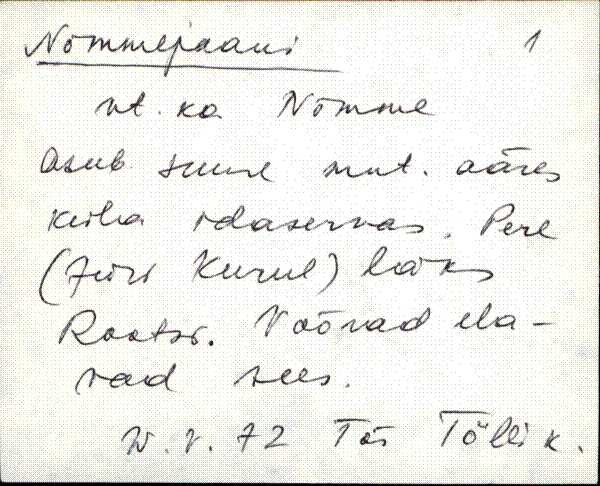 Nõmmejaani 1
vt. ka Nõmme
Asub suure mnt. ääres
küla idaservas. Pere
(Jüri Kurul) läks
Rootsi. Võõrad ela-
vad sees.
W. V. 72 Töllik.